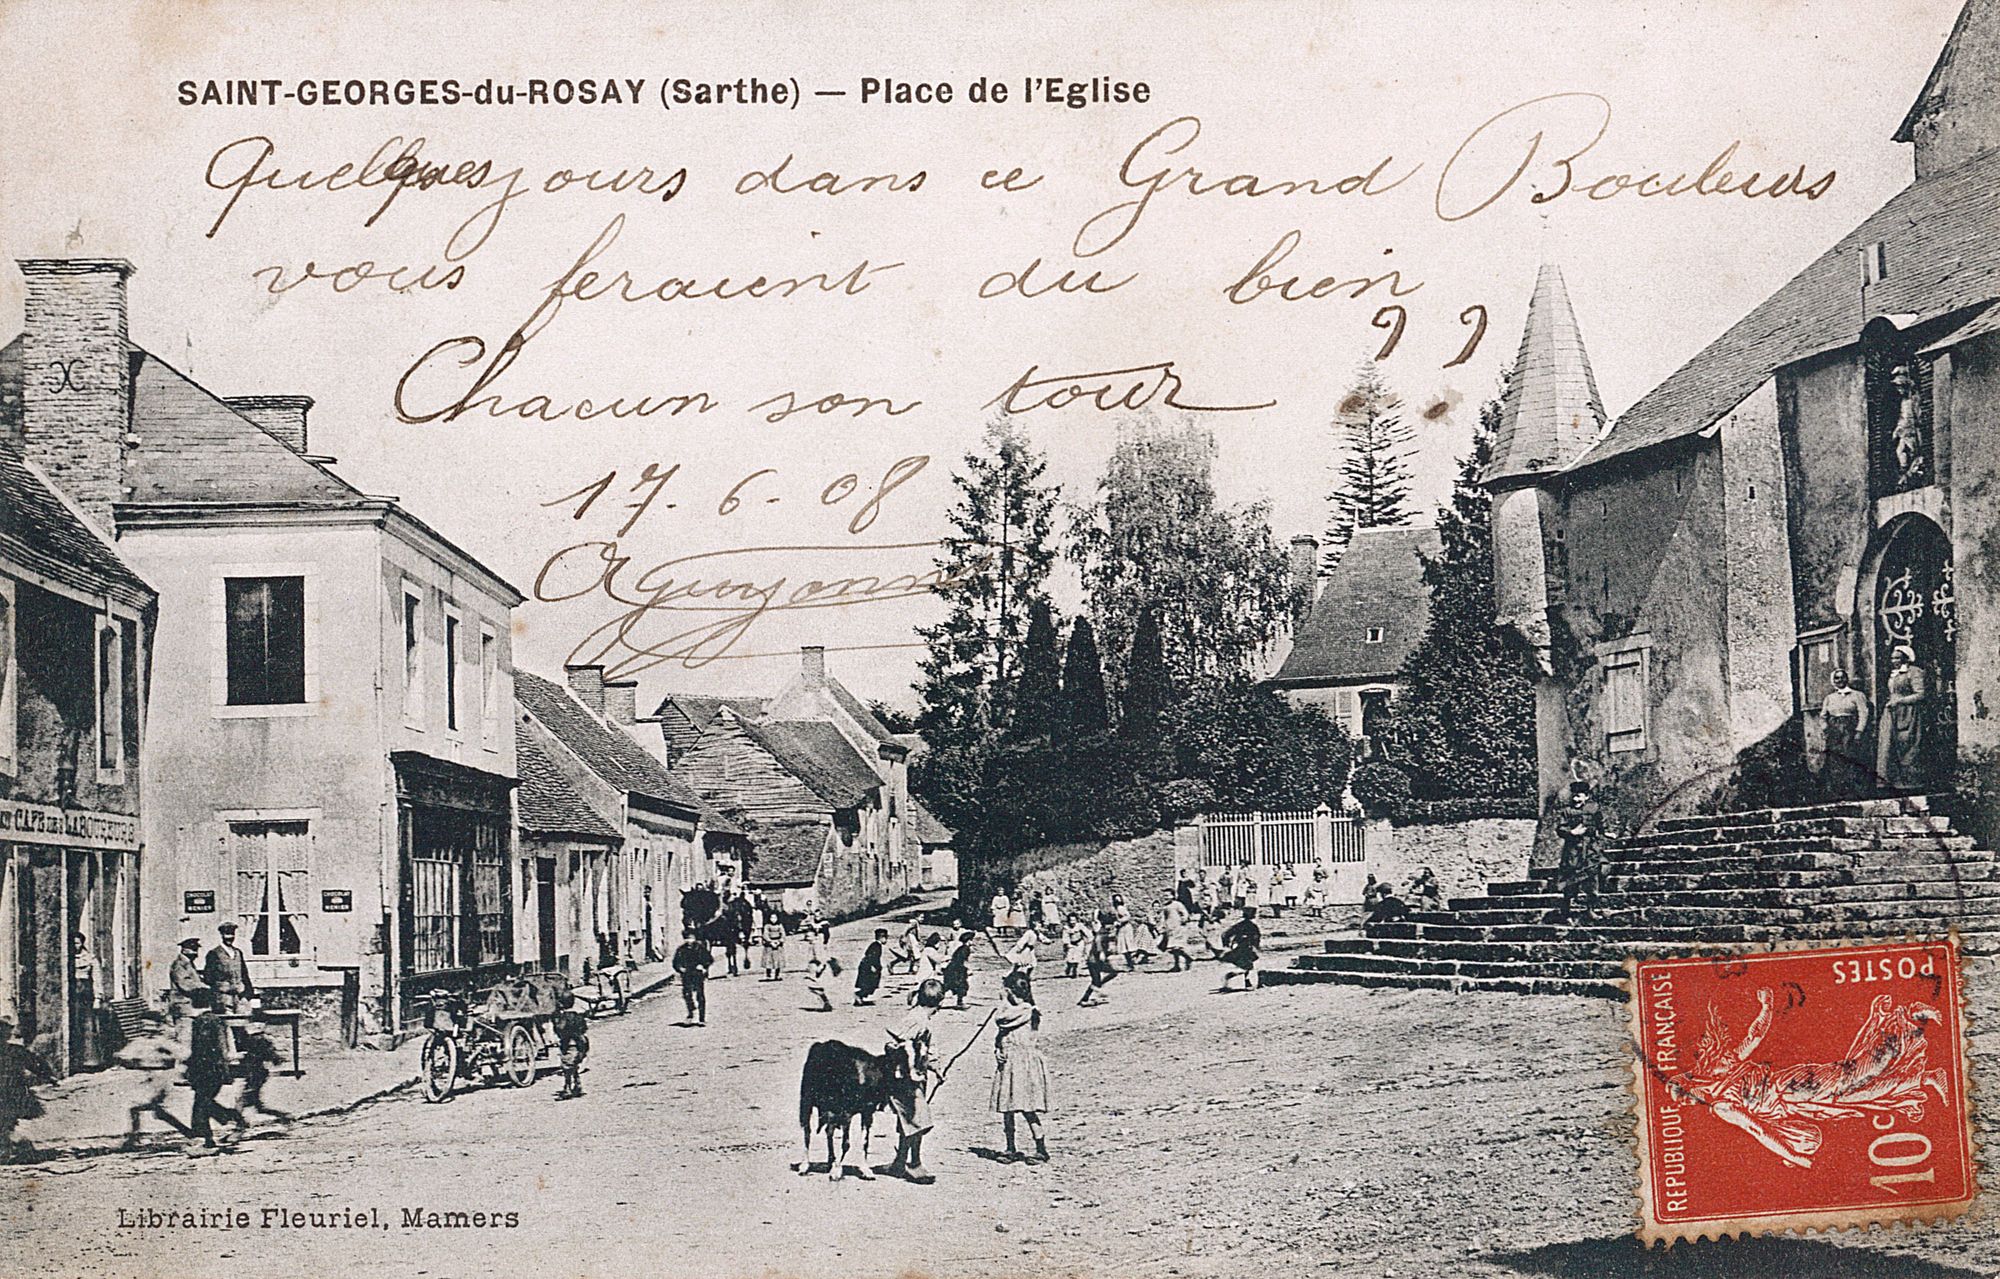 SAINT-GEORGES-du-ROSAY (Sarthe) — Place de l'Eglise
Quelques jours dans ce Grand Bouleurs
vous feraient du bien
Chacun son tour ??
17.6.08
CAFÉ DES LABOUREURS
CHOCOLAT MENIER
CHOCOLAT MENIER
REPUBLIQUE FRANÇAISE
POSTES
10c
Librairie Fleuriel, Mamers